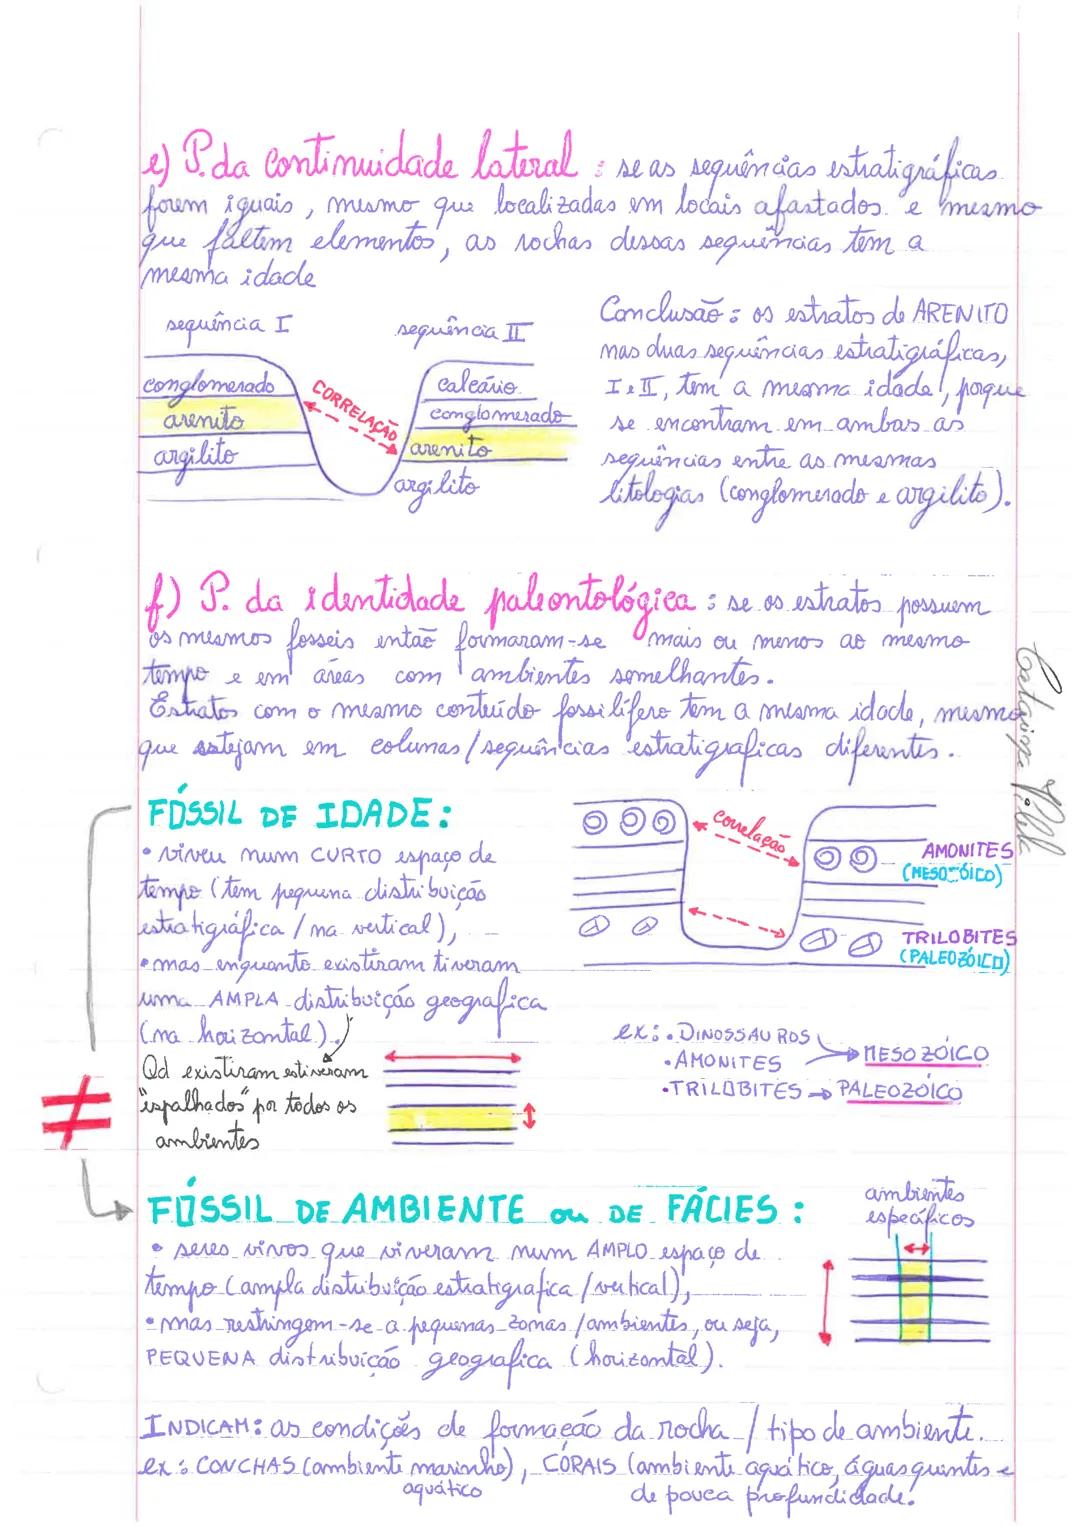 e) P. da continuidade lateral : se as sequências estratigráficas
forem iguais, mesmo que localizadas em locais afastados e mesmo
que faltem elementos, as rochas dessas sequências tem a
mesma idade
sequência I
sequência II
conglomerado
arenito
argilito
CORRELAÇÃO
calcário
conglomerado
arenito
argilito
Conclusão : os estratos de ARENITO
nas duas sequências estratigráficas,
I e II, tem a mesma idade, porque
se encontram em ambas as
sequências entre as mesmas
litologias (conglomerado e argilito).
f) P. da identidade paleontológica : se os estratos possuem
os mesmos fosseis então formaram-se mais ou menos ao mesmo
tempo e em áreas com ambientes semelhantes.
Estratos com o mesmo conteúdo fossilífero tem a mesma idade, mesmo
que estejam em colunas/sequências estratigraficas diferentes.
FÓSSIL DE IDADE:
• viveu num CURTO espaço de
tempo (tem pequena distribuição
estratigráfica / na vertical),
• mas enquanto existiram tiveram
uma AMPLA distribuição geografica
(na horizontal).
Qd existiram estiveram
"espalhados" por todos os
ambientes
correlação
AMONITES
(MESOZÓICO)
TRILOBITES
(PALEOZÓICO)
ex: • DINOSSAUROS
• AMONITES → MESOZÓICO
• TRILOBITES → PALEOZÓICO
≠
FÓSSIL DE AMBIENTE ou DE FÁCIES :
• seres vivos que viveram num AMPLO espaço de
tempo (ampla distribuição estratigrafica / vertical),
• mas restringem-se a pequenas zonas / ambientes, ou seja,
PEQUENA distribuição geografica (horizontal).
ambientes
específicos
INDICAM: as condições de formação da rocha / tipo de ambiente.
ex : CONCHAS (ambiente marinho), CORAIS (ambiente aquático, águas quentes e
aquático
de pouca profundidade.